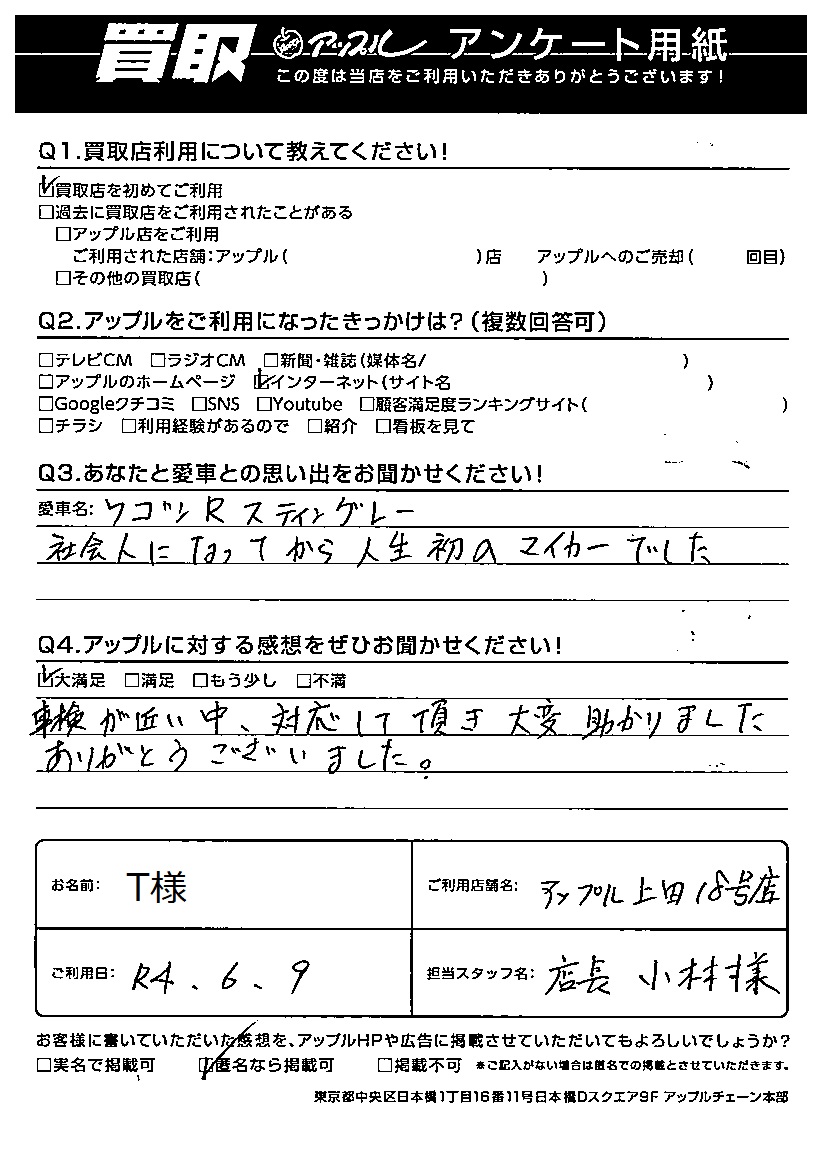 買取 アップル アンケート用紙
この度は当店をご利用いただきありがとうございます!
Q1.買取店利用について教えてください!
☑買取店を初めてご利用
□過去に買取店をご利用されたことがある
□アップル店をご利用
ご利用された店舗:アップル( )店 アップルへのご売却( 回目)
□その他の買取店( )
Q2.アップルをご利用になったきっかけは?(複数回答可)
□テレビCM □ラジオCM □新聞・雑誌(媒体名/ )
□アップルのホームページ ☑インターネット(サイト名 )
□Googleクチコミ □SNS □Youtube □顧客満足度ランキングサイト( )
□チラシ □利用経験があるので □紹介 □看板を見て
Q3.あなたと愛車との思い出をお聞かせください!
愛車名: ワゴン R スティングレー
社会人になってから人生初のマイカーでした
Q4.アップルに対する感想をぜひお聞かせください!
☑大満足 □満足 □もう少し □不満
車検が近い中、対応して頂き大変助かりました
ありがとうございました。
お名前: T様 ご利用店舗名: アップル上田18号店
ご利用日: R4.6.9 担当スタッフ名: 店長 小林様
お客様に書いていただいた感想を、アップルHPや広告に掲載させていただいてもよろしいでしょうか?
□実名で掲載可 ☑匿名なら掲載可 □掲載不可 *ご記入がない場合は匿名での掲載とさせていただきます。
東京都中央区日本橋1丁目16番11号日本橋Dスクエア9F アップルチェーン本部